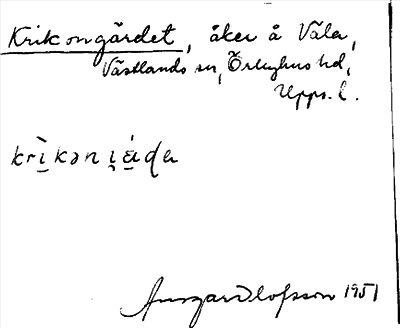 Krikongärdet, åker å Våla,
Västlands sn, Örbyhus hd,
Upps. l.
krì̱kən ı̨á̱da
Ansgar Olofsson 1951